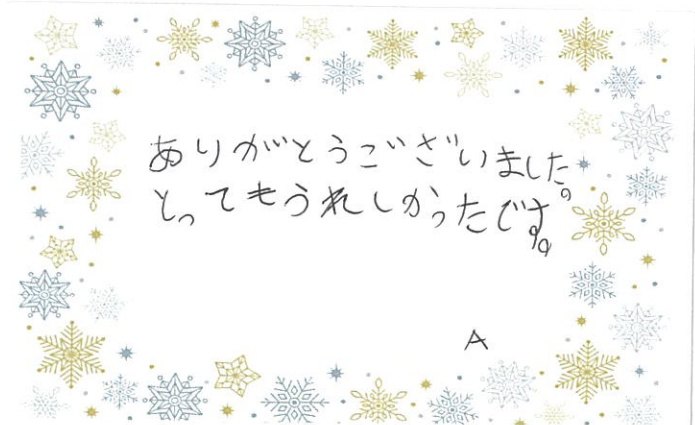 ありがとうございました。
とってもうれしかったです。
A